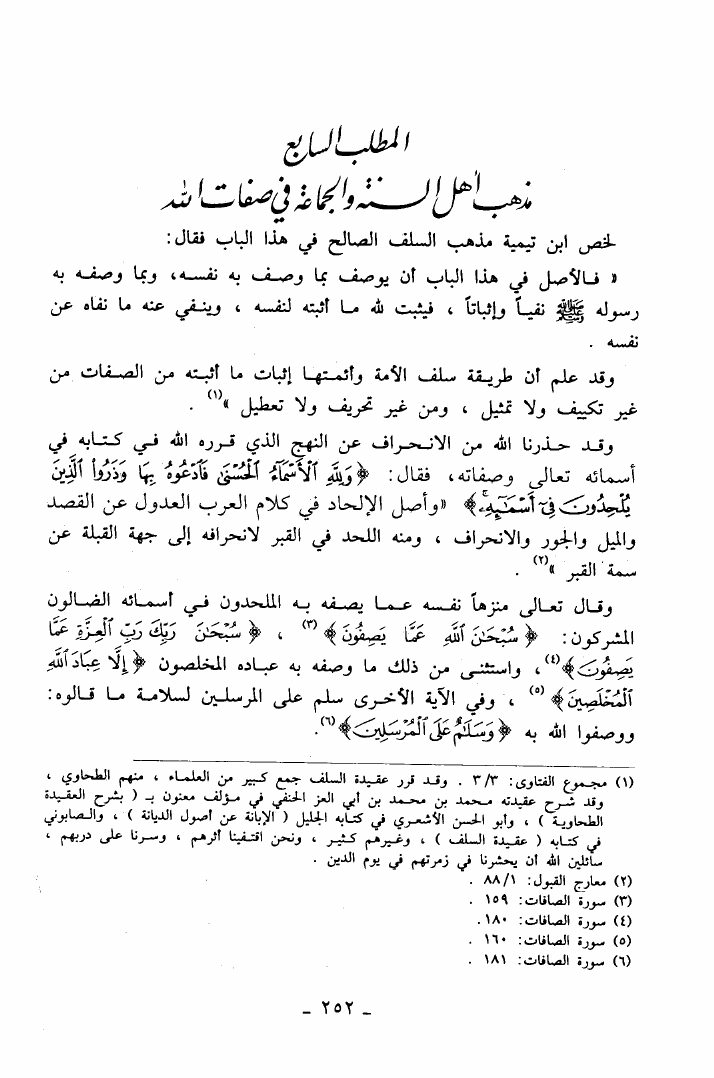 المطلب السابع
مذهب أهل السنة والجماعة في صفات الله
لخص ابن تيمية مذهب السلف الصالح في هذا الباب فقال:
« فالأصل في هذا الباب أن يوصف بما وصف به نفسه، وبما وصفه به
رسوله ﷺ نفياً وإثباتاً ، فيثبت لله ما أثبته لنفسه ، وينفي عنه ما نفاه عن
نفسه .
وقد علم أن طريقة سلف الأمة وأئمتها إثبات ما أثبته من الصفات من
غير تكييف ولا تمثيل ، ومن غير تحريف ولا تعطيل »(١) .
وقد حذرنا الله من الانحراف عن النهج الذي قرره الله في كتابه في
أسمائه تعالى وصفاته، فقال: ﴿وَلِلَّهِ الْأَسْمَاءُ الْحُسْنَىٰ فَادْعُوهُ بِهَا وَذَرُوا الَّذِينَ
يُلْحِدُونَ فِي أَسْمَائِهِ﴾ «وأصل الإلحاد في كلام العرب العدول عن القصد
والميل والجور والانحراف ، ومنه اللحد في القبر لانحرافه إلى جهة القبلة عن
سمة القبر »(٢) .
وقال تعالى منزهاً نفسه عما يصفه به الملحدون في أسمائه الضالون
المشركون: ﴿سُبْحَانَ اللَّهِ عَمَّا يَصِفُونَ﴾(٣) ، ﴿سُبْحَانَ رَبِّكَ رَبِّ الْعِزَّةِ عَمَّا
يَصِفُونَ﴾(٤)، واستثنى من ذلك ما وصفه به عباده المخلصون ﴿إِلَّا عِبَادَ اللَّهِ
الْمُخْلَصِينَ﴾(٥) ، وفي الآية الأخرى سلم على المرسلين لسلامة ما قالوه:
ووصفوا الله به ﴿وَسَلَامٌ عَلَى الْمُرْسَلِينَ﴾(٦).
(١) مجموع الفتاوى: ٣/٣ . وقد قرر عقيدة السلف جمع كبير من العلماء ، منهم الطحاوي ،
وقد شرح عقيدته محمد بن محمد بن أبي العز الحنفي في مؤلف معنون بـ ( بشرح العقيدة
الطحاوية ) ، وأبو الحسن الأشعري في كتابه الجليل ( الإبانة عن أصول الديانة ) ، والصابوني
في كتابه ( عقيدة السلف ) ، وغيرهم كثير ، ونحن اقتفينا أثرهم ، وسرنا على دربهم ،
سائلين الله أن يحشرنا في زمرتهم في يوم الدين .
(٢) معارج القبول: ٨٨/١ .
(٣) سورة الصافات: ١٥٩ .
(٤) سورة الصافات: ١٨٠.
(٥) سورة الصافات: ١٦٠ .
(٦) سورة الصافات: ١٨١ .
ـ ٢٥٢ ـ